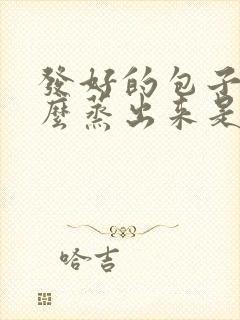 發好的包子
麼蒸出來是
哈吉